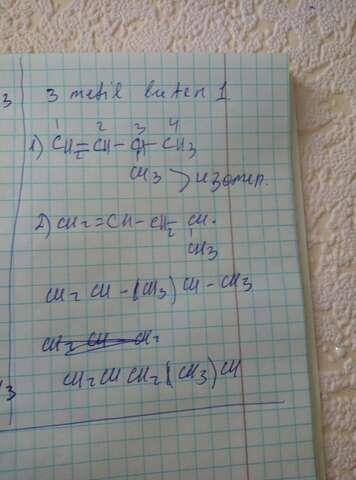 3 metil buten 1
1 2 3 4
1) CH2=CH-CH-CH3
CH3 > изомер.
2) CH2=CH-CH2-CH.
CH3
CH2 CH-(CH3)CH-CH3
CH2 CH CH2
CH2CHCH2(CH3)CH